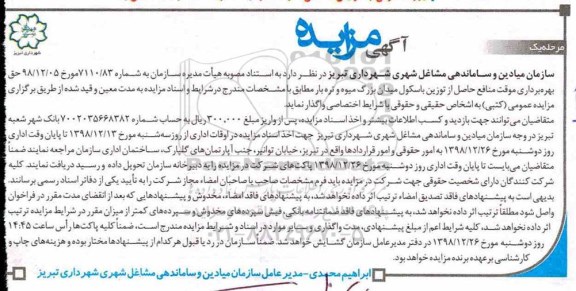 آگهی مزایده
مرحله یک
شهرداری تبریز
سازمان میادین و ساماندهی مشاغل شهری شهرداری تبریز در نظر دارد به استناد مصوبه هیأت مدیره سازمان به شماره ۷۱۱۰/۸۳ مورخ ۹۸/۱۲/۰۵ حق
بهره‌برداری موقت منافع حاصل از توزین باسکول میدان بزرگ میوه و تره بار مطابق با مشخصات مندرج در شرایط و اسناد مزایده به مدت معین و قید شده از طریق برگزاری
مزایده عمومی (کتبی) به اشخاص حقیقی و حقوقی با شرایط اختصاصی واگذار نماید.
متقاضیان می‌توانند جهت بازدید و کسب اطلاعات بیشتر و اخذ اسناد مزایده، پس از واریز مبلغ ۳۰۰,۰۰۰ ریال به حساب شماره ۷۰۰۲۰۳۵۶۶۸۳۸۲ بانک شهر شعبه
تبریز در وجه سازمان میادین و ساماندهی مشاغل شهری شهرداری تبریز جهت اخذ اسناد مزایده در اوقات اداری از روز سه‌شنبه مورخ ۱۳۹۸/۱۲/۱۳ تا پایان وقت اداری
روز دوشنبه مورخ ۱۳۹۸/۱۲/۲۶ به امور حقوقی و امور قراردادها واقع در تبریز، خیابان توانیر، جنب آپارتمان‌های گلپارک، ساختمان اداری سازمان مراجعه نمایند ضمناً
متقاضیان می‌بایست تا پایان وقت اداری روز دوشنبه مورخ ۱۳۹۸/۱۲/۲۶ پاکت‌های شرکت در مزایده را به دبیرخانه سازمان تحویل داده و رسید دریافت نمایند. کلیه
شرکت کنندگان دارای شخصیت حقوقی جهت شرکت در مزایده باید فرم مشخصات صاحب یا صاحبان امضاء مجاز شرکت را به تأیید یکی از دفاتر اسناد رسمی برسانند.
بدیهی است به پیشنهادهای فاقد تصدیق امضاء ترتیب اثر داده نخواهد شد، به پیشنهادهای فاقد امضاء، مخدوش و پیشنهادهایی که بعد از انقضای مدت مقرر در فراخوان
واصل شود مطلقاً ترتیب اثر داده نخواهد شد، به پیشنهادهای فاقد ضمانتنامه بانکی، فیش سپرده‌های مخدوش و سپرده‌های کمتر از میزان مقرر در شرایط مزایده ترتیب
اثر داده نخواهد شد، کلیه شرایط اعم از مبلغ پیشنهادی، مدت واگذاری و سایر موارد در اسناد و شرایط مزایده مندرج است، ضمناً کلیه پاکت‌ها رأس ساعت ۱۴:۴۵
روز دوشنبه مورخ ۱۳۹۸/۱۲/۲۶ در دفتر مدیرعامل سازمان گشایش خواهد شد، ضمناً سازمان در رد یا قبول هر کدام از پیشنهادها مختار بوده و هزینه‌های چاپ و
کارشناسی بر عهده برنده مزایده خواهد بود.
ابراهیم محمدی - مدیر عامل سازمان میادین و ساماندهی مشاغل شهری شهرداری تبریز